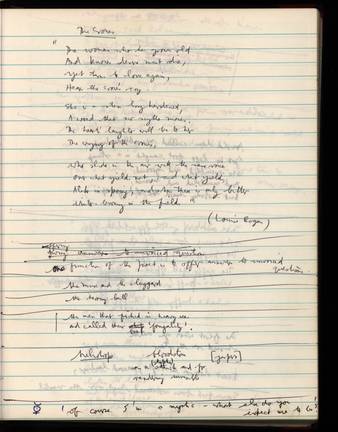 The Crows
"
The woman who has grown old
And knows desire must die,
Yet turns to love again,
Hears the crows' cry.
She is a stem long hardened,
A weed that no scythe mows.
The heart's laughter will be to her
The crying of the crows,
Who slide in the air with the same voice
Over what yields not, and what yields,
Alike in spring, and when there is only bitter
Winter-burning in the fields. "
(Louise Bogan)
giving answers to unvoiced question
One function of the poet is to offer answers to unvoiced
questions.
the man and the
the ball
the man that
and called them 'frugality'.
heliotrope bloodstone [jasper]
rendering invisible
'Of course I'm a - what else do you
expect me to be?'